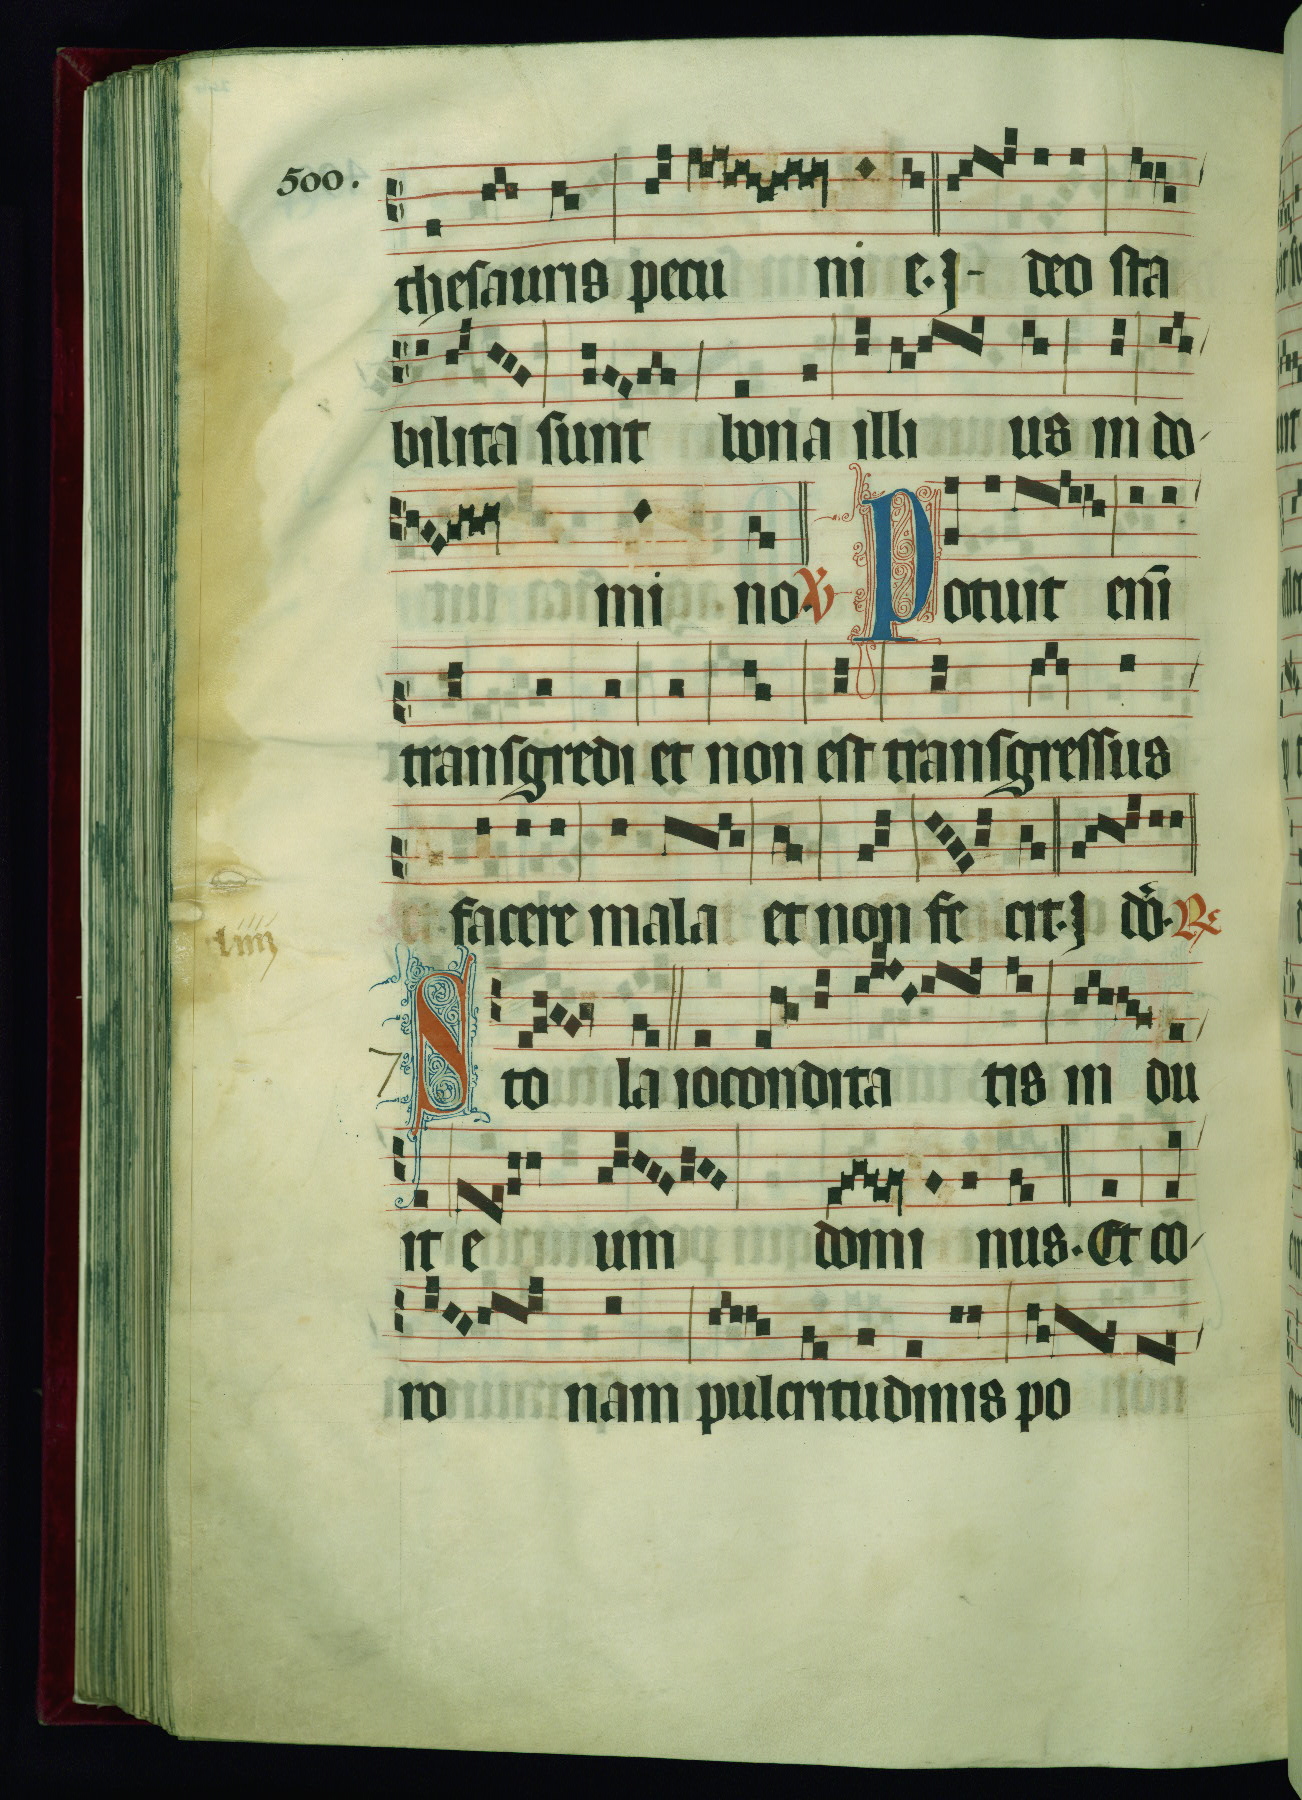 500.
thesauris pecu ni e. I- deo sta
bilita sunt bona illi us in do-
mi no. V Potuit eni̅
transgredi et non est transgressus
facere mala et non fe cit. I do. Re
liiij
7
Sto la iocondita tis in du
it e um domi nus. Et co-
ro nam pulcritudinis po